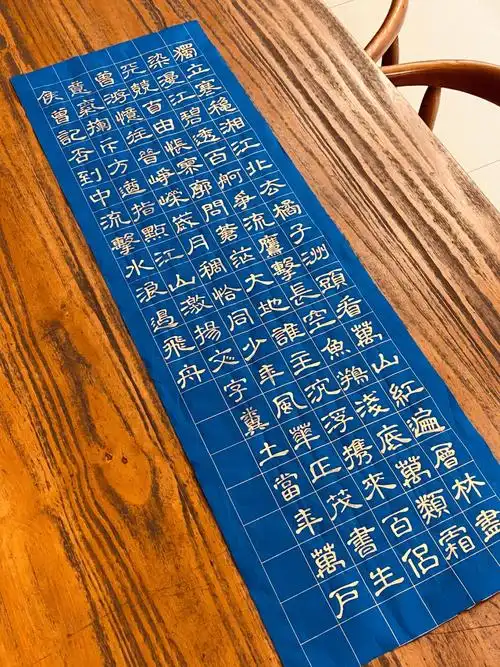 獨立寒穐湘江北去橘子洲頭看萬山紅遍層林盡
染漫江碧透百舸爭流鷹擊長空魚翔淺底萬類霜
天競自由悵寥廓問蒼茫大地誰主沉浮携來百侶
曾游憶往昔崢嶸歲月稠恰同少年風華正茂書生
意氣揮斥方遒指點江山激揚文字糞土當年萬戶
侯曾記否到中流擊水浪遏飛舟